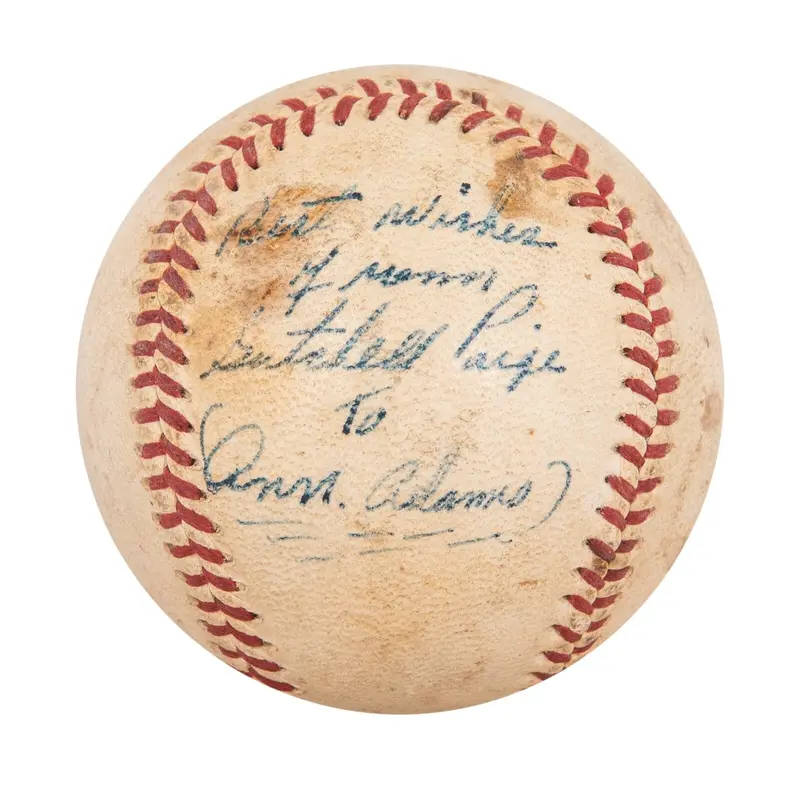 Best wishes
From
Satchell Paige
To
(Ann. Adams)